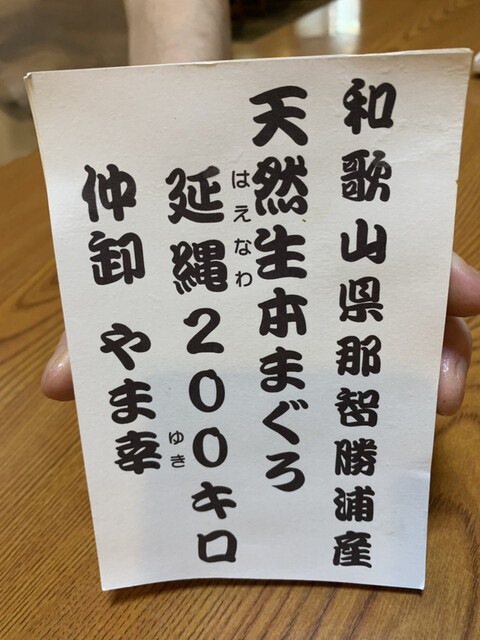 和歌山県那智勝浦産
天然生本まぐろ
はえなわ
延縄200キロ
ゆき
仲卸 やま幸